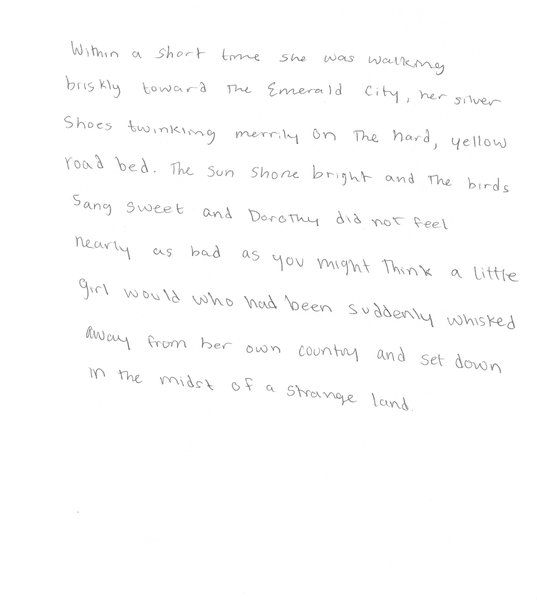 Within a short time she was walking
briskly toward The Emerald City, her silver
Shoes twinkling merrily on The hard, yellow
road bed. The sun shone bright and The birds
Sang sweet and Dorothy did not feel
nearly as bad as you might Think a little
girl would who had been suddenly whisked
away from her own country and set down
in the midst of a strange land.